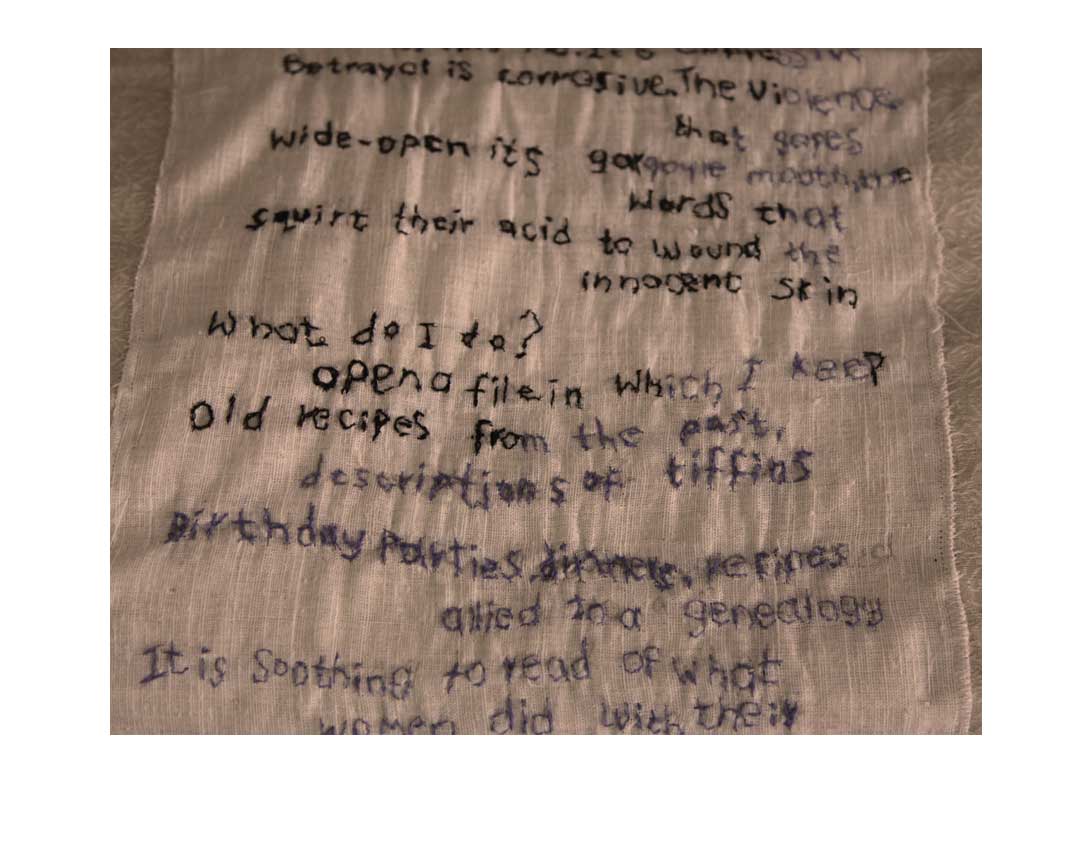 Betrayal is corrosive. The violence
that gapes
wide-open its gargoyle mouth, the
words that
squirt their acid to wound the
innocent skin
What do I do?
open a file in which I keep
old recipes from the past,
descriptions of tiffins
Birthday Parties, dinners, recipes
allied to a genealogy
It is Soothing to read of what
women did with their